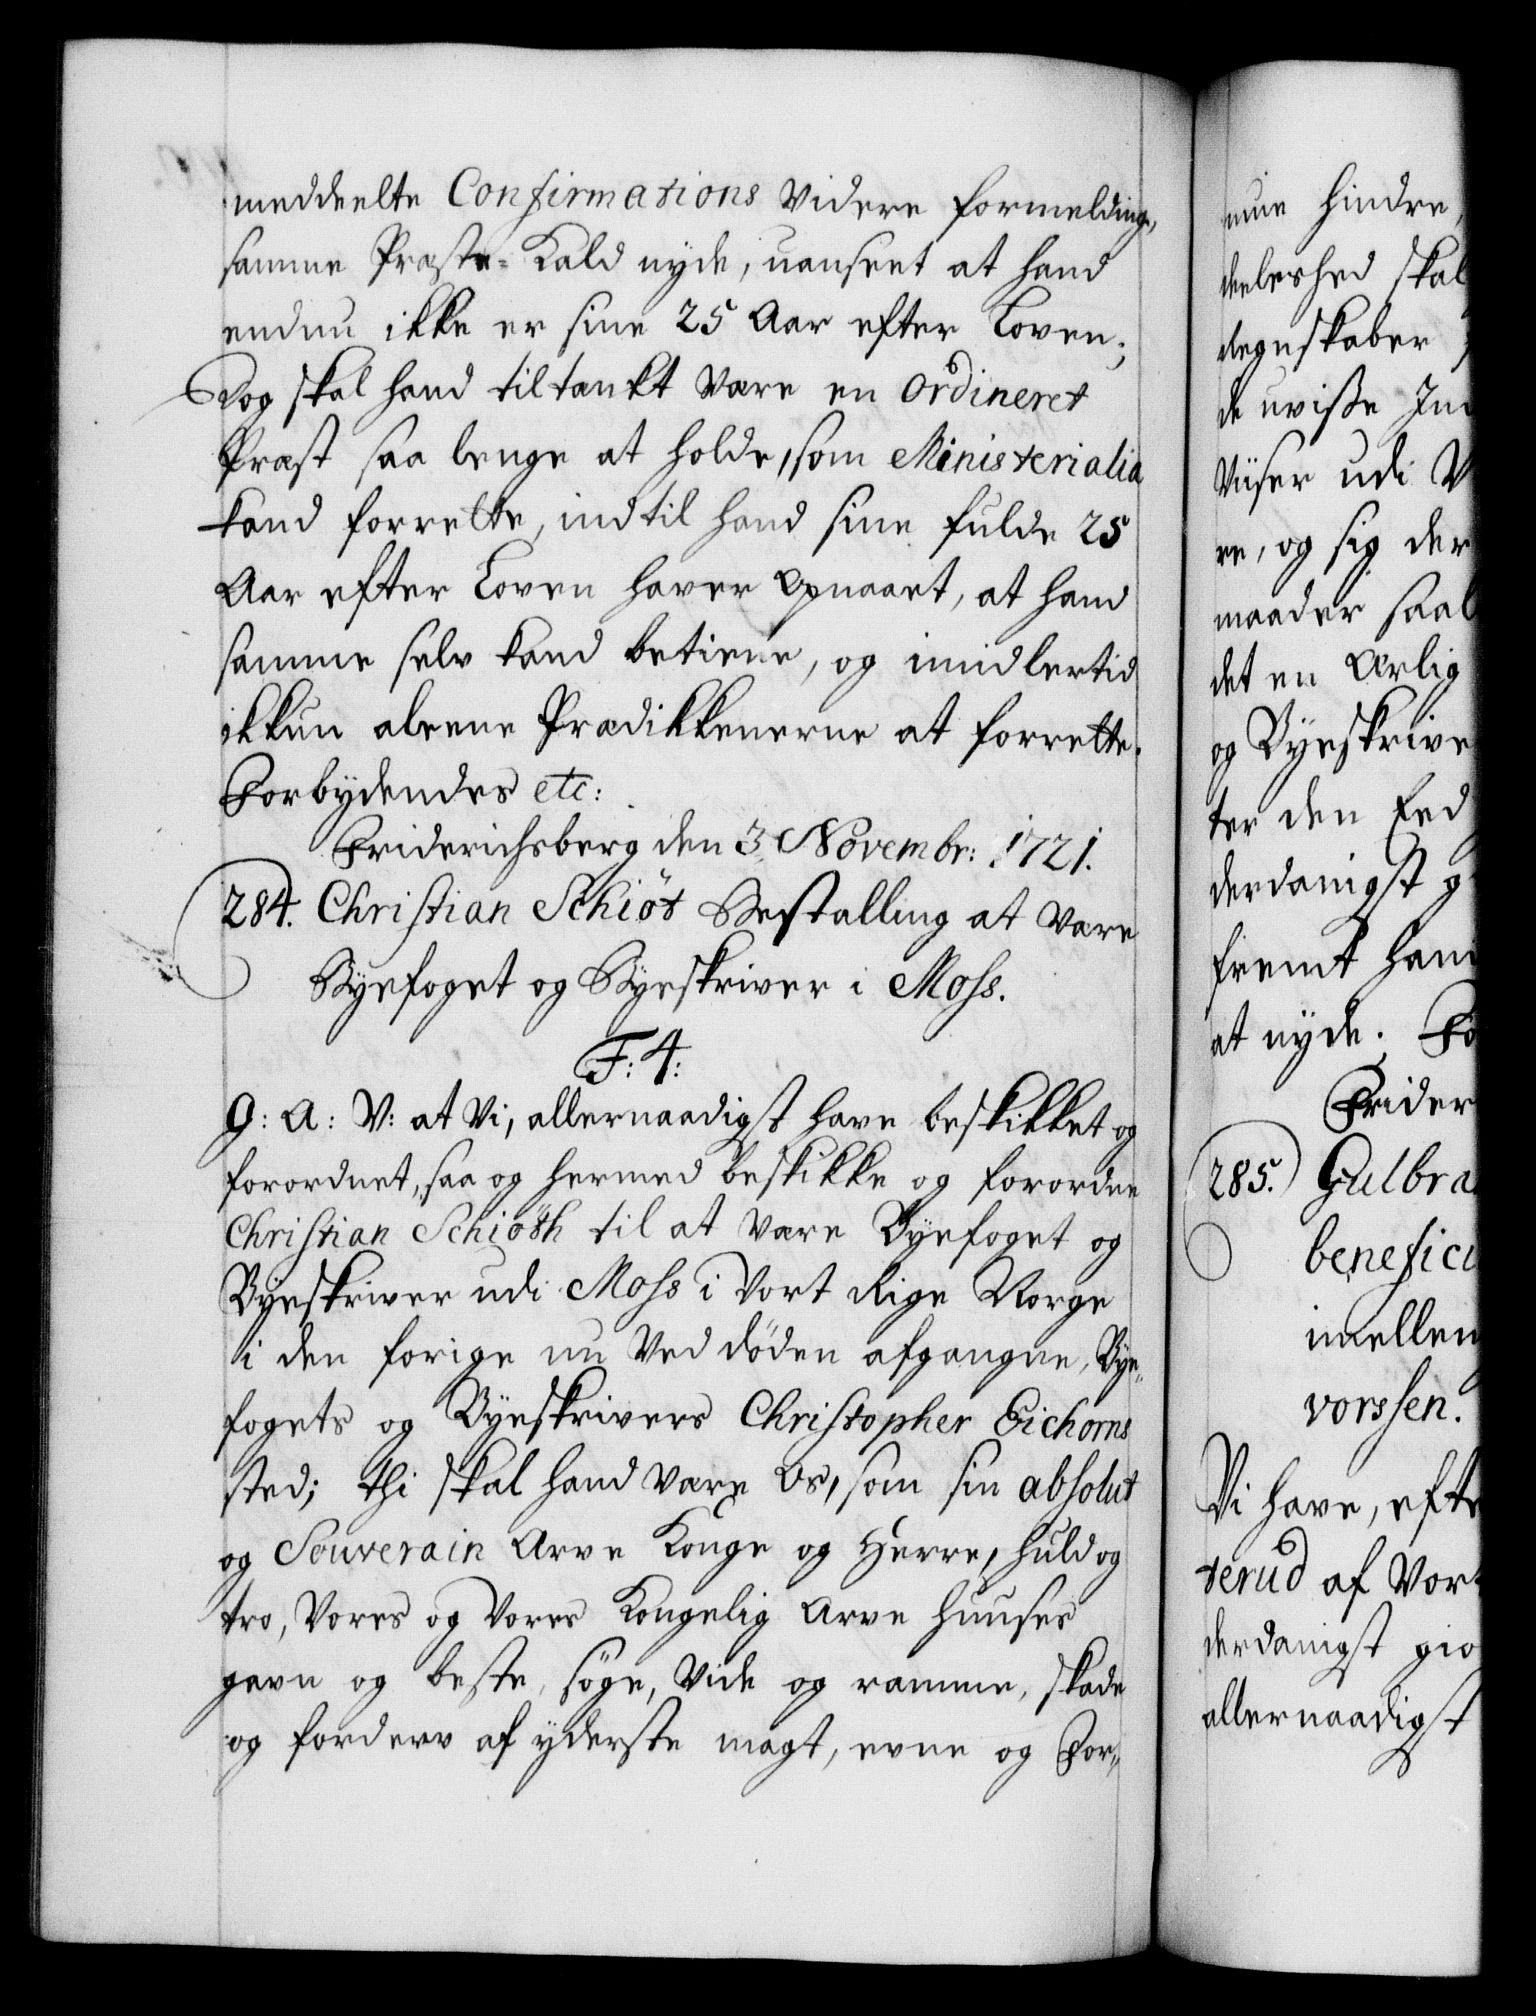 meddeelte Confirmations videre formelding,
samme Præste-Kald nyde, uanseet at hand
endnu ikke er sine 25 Aar efter Loven;
Dog skal hand tiltænkt være en ordineret
Præst saa lenge at holde, som Ministerialia
kand forrette, indtil hand sine fulde 25
Aar efter Loven haver opnaaet, at hand
samme selv kand betiene, og imidlertid
ikkun aleene Prædikkenerne at forrette.
Forbydendes etc:
Friderichsberg den 3 Novembr: 1721.
284. Christian Schiöt Bestalling at være
Byefoget og Byeskriver i Moss.
F: 4:
G: A: V: at Vi, allernaadigst have beskikket og
forordnet, saa og hermed beskikke og forordne
Christian Schiöth til at være Byefoget og
Byeskriver udi Moss i Vort Rige Norge
i den forige nu ved döden afgangne, Bye„
fogets og Byeskrivers Christopher Eichorns
sted; thi skal hand være Os, som sin absolut
og Souverain Arve Konge og Herre, huld og
tro, Vores og Vores Kongelig Arve Huuses
gavn og beste, söge, vide og ramme, skade
og forderv af yderste magt, evne og For„
mue hindre,
deeleshed skal
Regnskaber
de uvisse Ind
Viiser udi V
re, og sig der
maader saal
det en Ærlig
og Byeskrive
ter den Eed
derdanigst g
fremt hand
at nyde. Fo
Frider
285. Gulbra
benefici
imellem
vorssen.
Vi have, efte
terud af Vort
derdanigst gio
allernaadigst